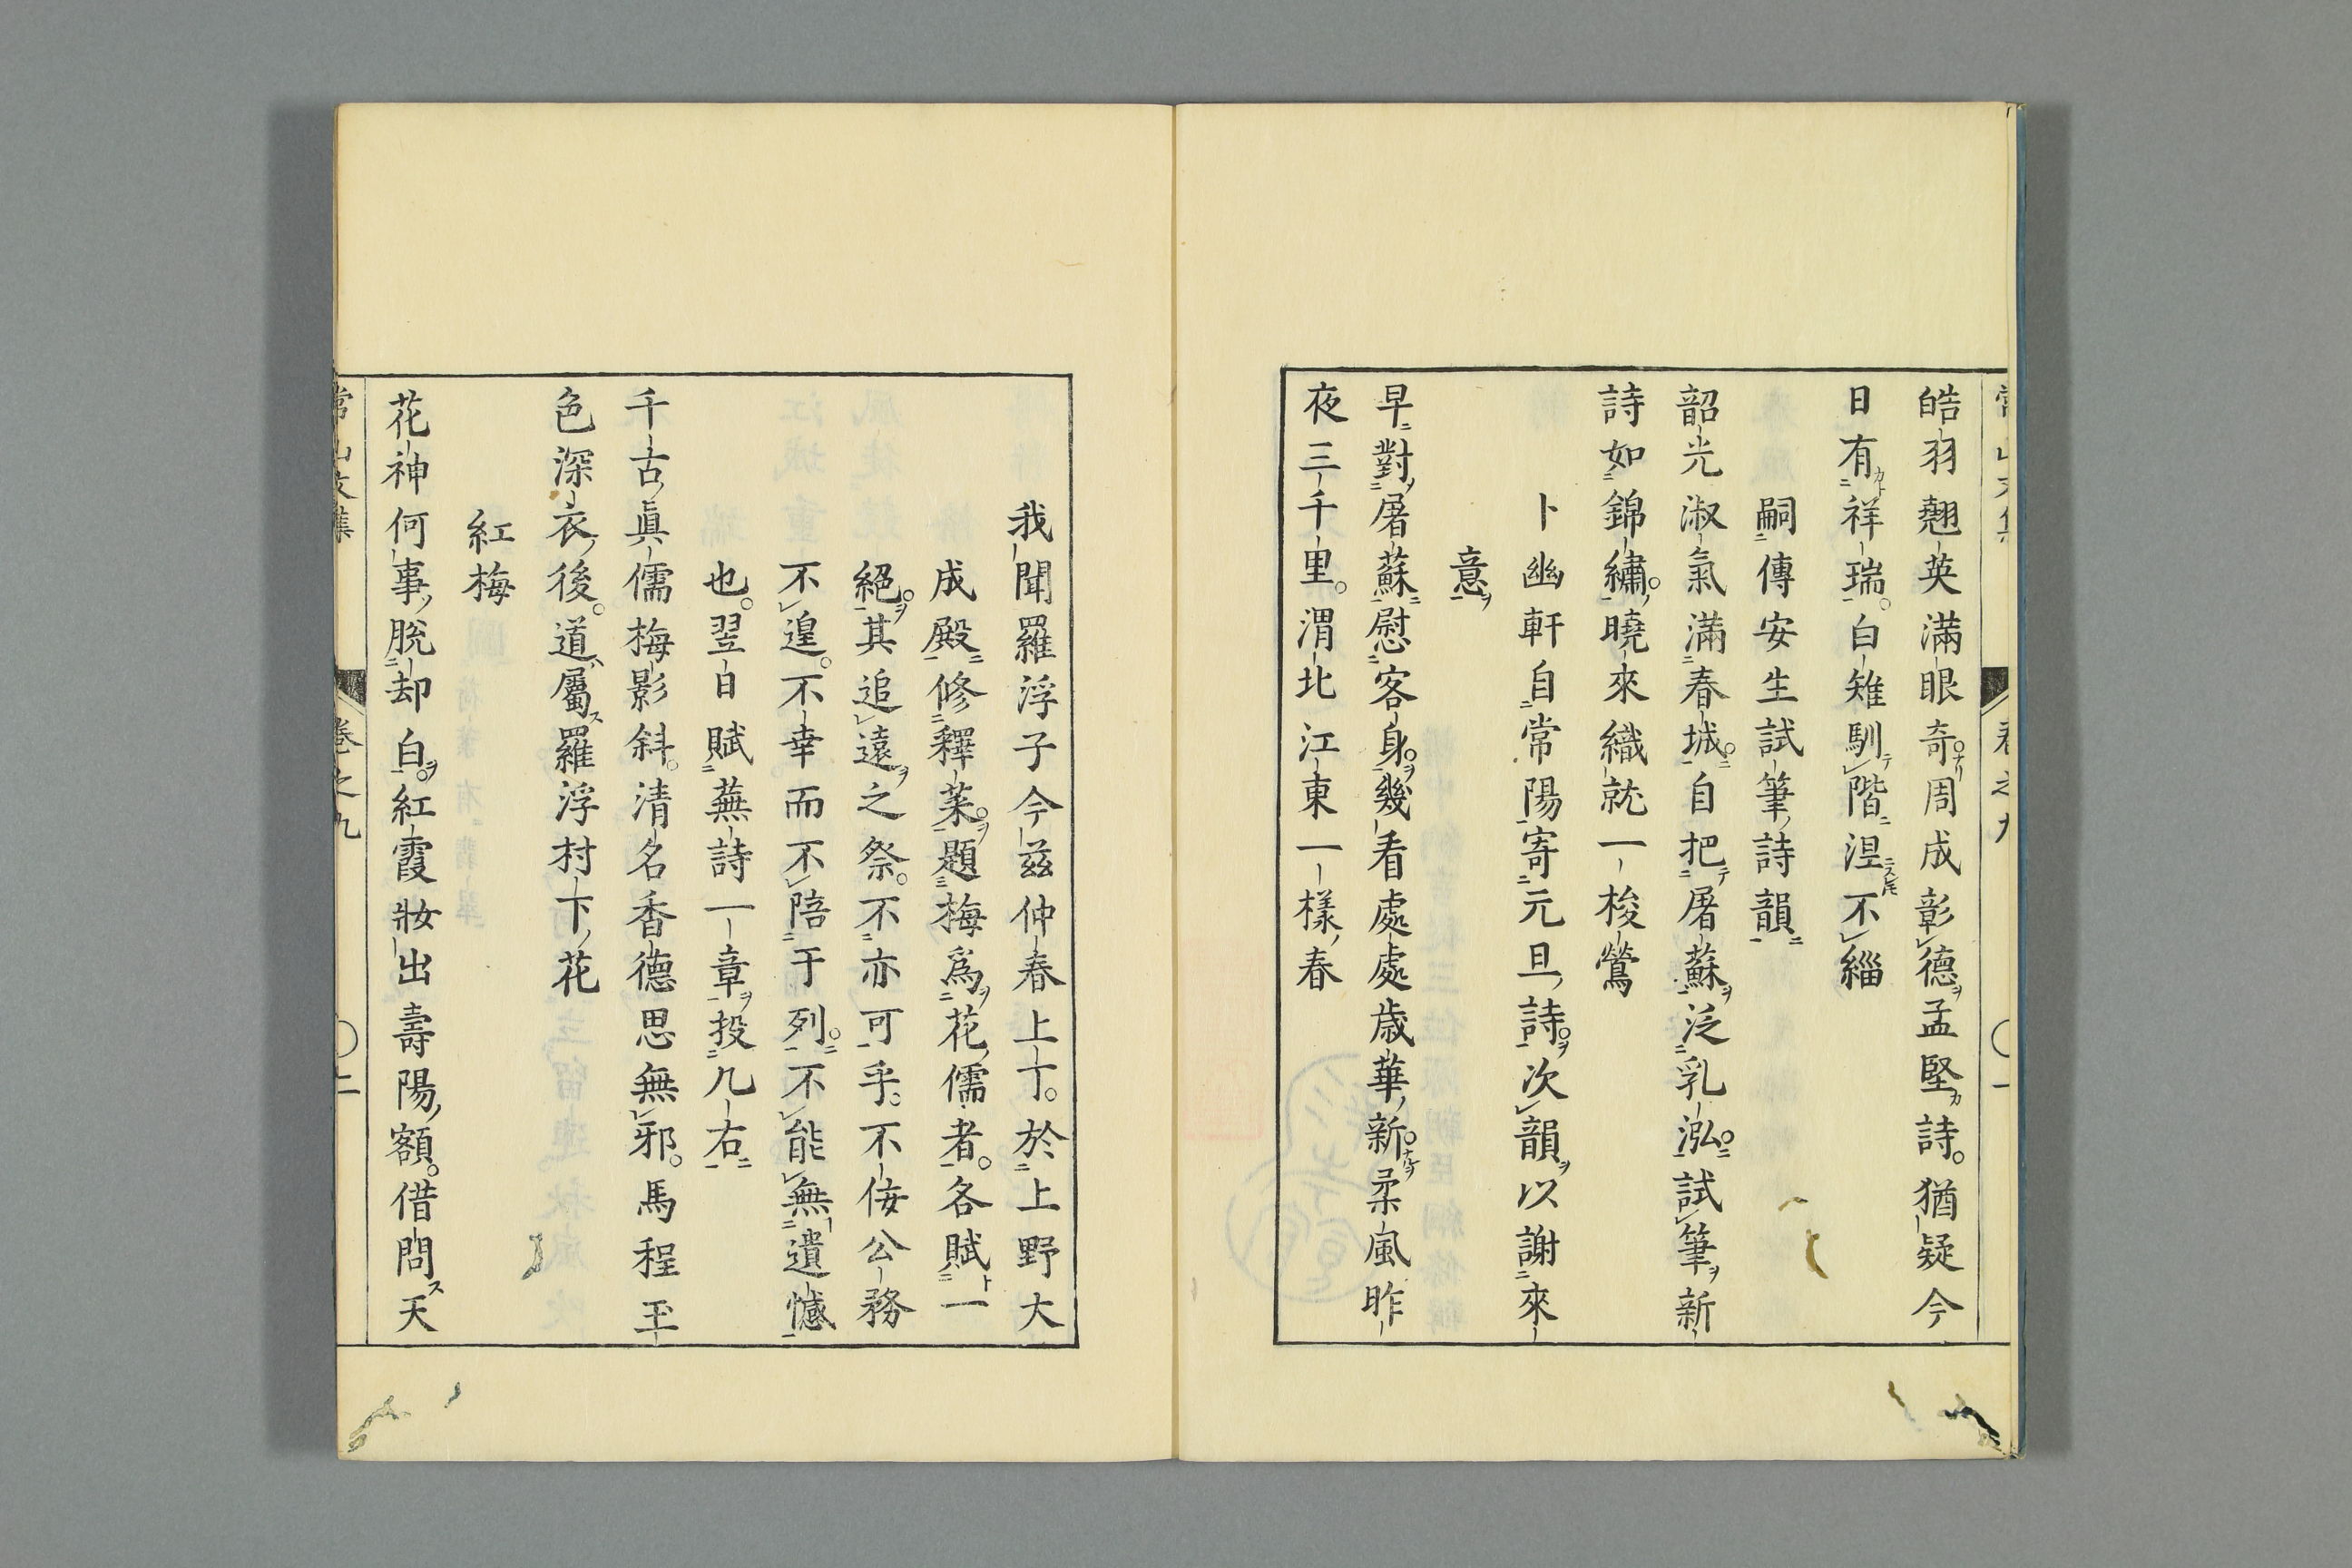 皓羽翹英滿眼奇周成彰德孟堅詩猶疑今
日有祥瑞白雉馴階涅不緇
嗣傳安生試筆詩韻
韶光淑氣滿春城自把屠蘇泛乳泓試筆新
詩如錦繡曉來織就一梭鶯
卜幽軒自常陽寄元旦詩次韻以謝來
意
早對屠蘇慰客身幾看處處歳華新柔風昨
夜三千里渭北江東一樣春
我聞羅浮子今茲仲春上丁於上野大
成殿修釋菜題梅爲花儒者各賦一
絕其追遠之祭不亦可乎不佞公務
不遑不幸而不陪于列不能無遺憾
也翌日賦蕪詩一章投几右
千古眞儒梅影斜清名香德思無邪馬程王
色深衣後道屬羅浮村下花
紅梅
花神何事脫却白紅霞妝出壽陽額借問天
常山文集
卷之九
二